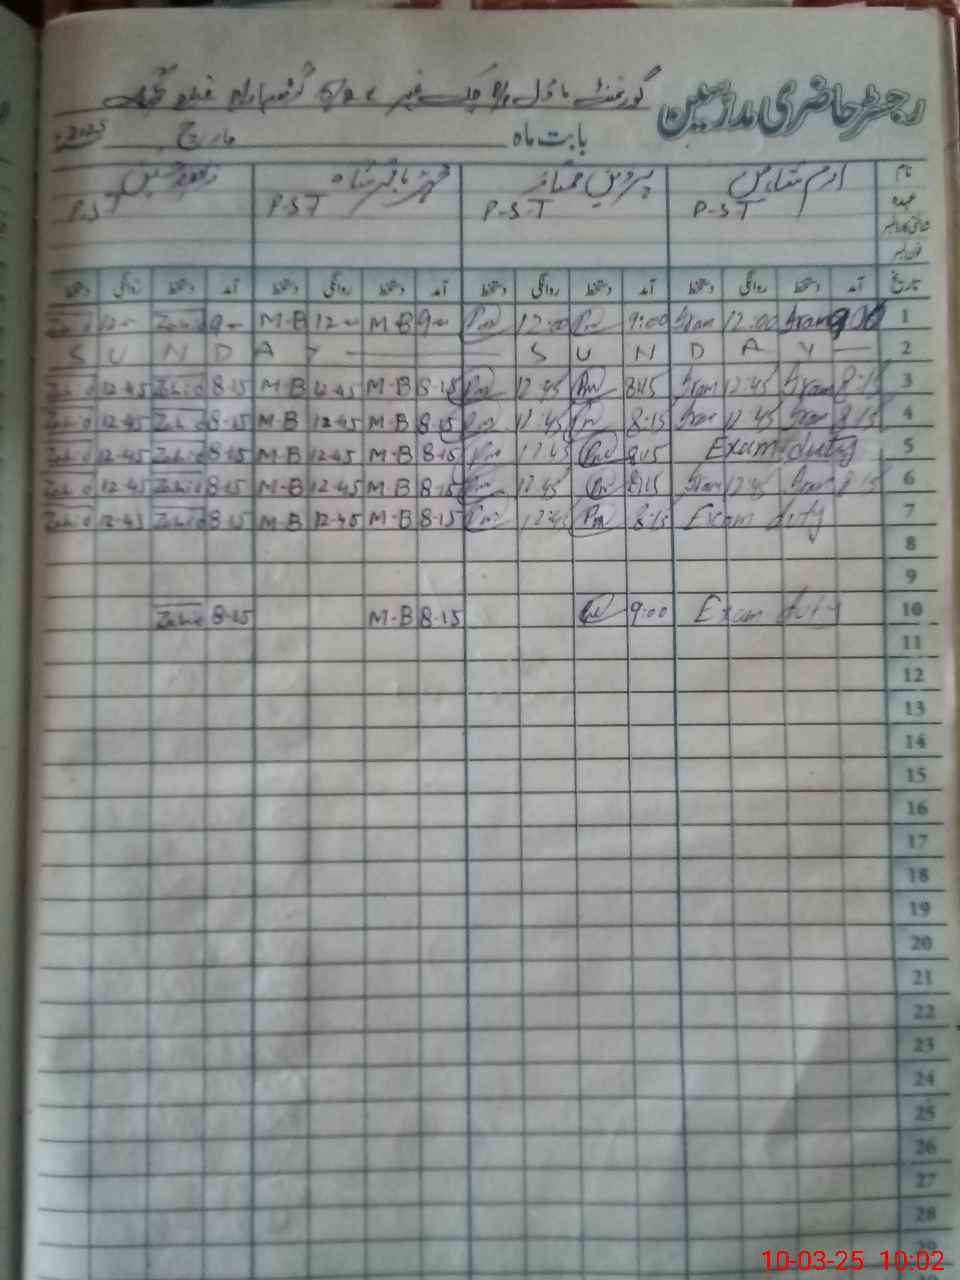 رجسٹر حاضری مدرسین
گورنمنٹ ماڈل
بابت ماہ مارچ 2025
نام ارم شفا پروین ممتاز محمد باقر شاہ زاہد حسین
عہدہ P-S-T P-S-T P-S-T P-S-T
شناختی کارڈ نمبر
فون نمبر
تاریخ آمد دستخط روانگی دستخط آمد دستخط روانگی دستخط آمد دستخط روانگی دستخط آمد دستخط روانگی دستخط
Zahid 12-00 Zahid 9-00 M-B 12-00 M-B 9-00 Pm 12:00 Pm 9:00 Iram 12:00 Iram 9:00 1
S U N D A Y — S U N D A Y — 2
Zahid 12-45 Zahid 8-15 M-B 12-45 M-B 8-15 Pm 12:45 Pm 8:15 Iram 12:45 Iram 8:15 3
Zahid 12-45 Zahid 8-15 M-B 12-45 M-B 8-15 Pm 12:45 Pm 8:15 Iram 12:45 Iram 8:15 4
Zahid 12-45 Zahid 8-15 M-B 12-45 M-B 8-15 Pm 12:45 Pm 8:15 Exam duty 5
Zahid 12-45 Zahid 8-15 M-B 12-45 M-B 8-15 Pm 12:45 Pm 8:15 Iram 12:45 Iram 8:15 6
Zahid 12-45 Zahid 8-15 M-B 12-45 M-B 8-15 Pm 12:45 Pm 8:15 Exam duty 7
8
9
Zahid 8-15 M-B 8-15 9:00 Exam duty 10
11
12
13
14
15
16
17
18
19
20
21
22
23
24
25
26
27
28
29
10-03-25 10:02